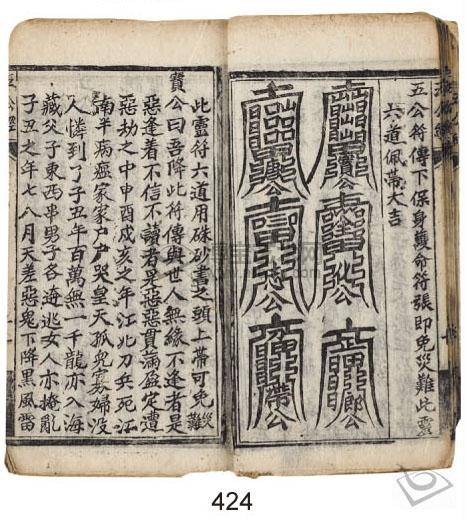 五公符傳下保身護命符張即免災難此靈
六道佩帶大吉
公
公
公
公
公
公
此靈符六道用硃砂書之頭上帶可免災難
寶公曰吾降此符傳與世人無緣不逢者是
惡逢着不信不讀者是惡惡貫滿盈定遭
惡劫之中申酉戌亥之年江北刀兵死江
南羊病瘟家家户户哭皇天孤兒寡婦没
人憐到了子丑年百萬無一千龍亦入海
藏父子東西串男子各逩逃女人亦掩亂
子丑之年七八月天差惡鬼下降黑風雷
五公經
424